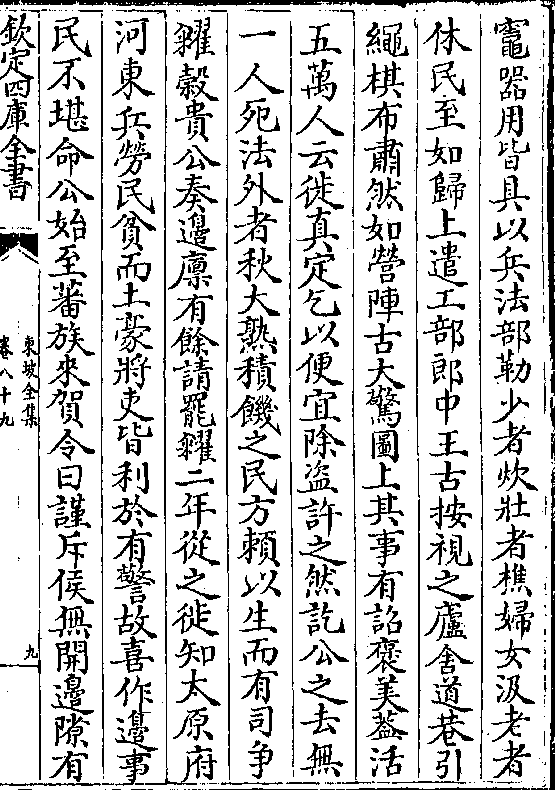 竈器用皆具以兵法部勒少者炊壯者樵婦女汲老者
休民至如歸上遣工部郎中王古按視之廬舍道巷引
繩棋布肅然如營陣古大驚圖上其事有詔褒美蓋活
五萬人云徙真定乞以便宜除盜許之然訖公之去無
一人死法外者秋大熟積饑之民方賴以生而有司争
糴榖貴公奏邉廪有餘請罷糴二年從之徙知太原府
河東兵勞民貧而土豪將吏皆利於有警故喜作邉事
民不堪命公始至蕃族來賀令曰謹斥候無開邉隙有
欽定四庫全書
東坡全集
卷八十九
九